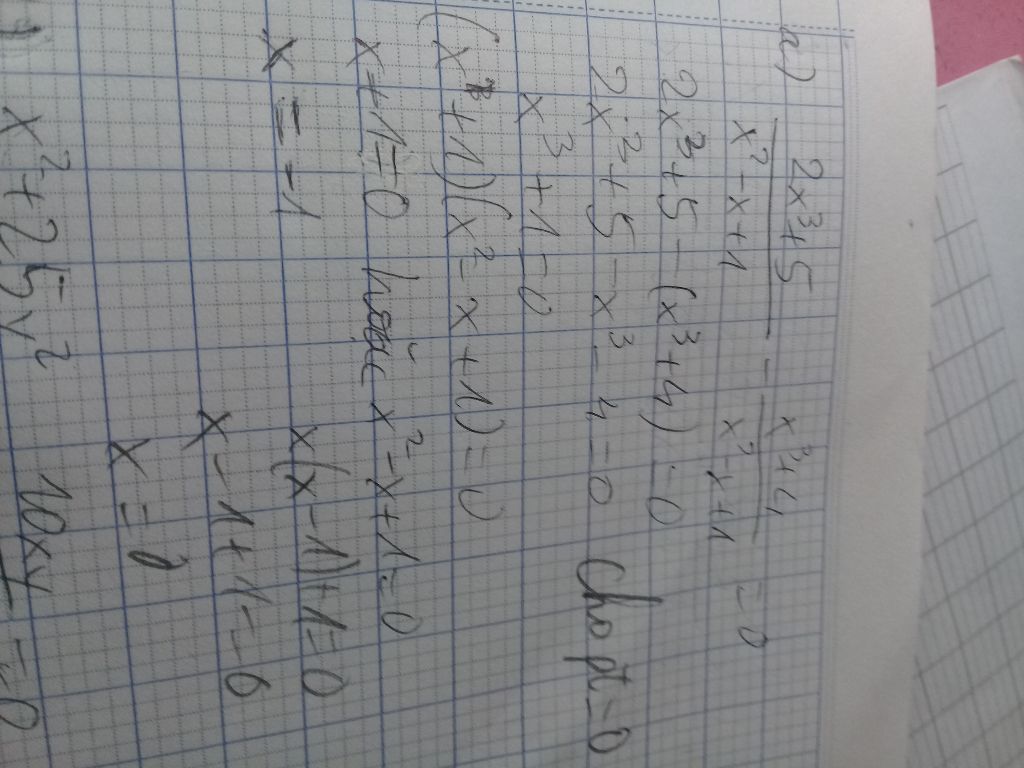 a) (2x³+5)/(x²-x+1) - (x³+4)/(x²-x+1) = 0
2x³+5-(x³+4)=0
2x³+5-x³-4=0 Cho pt=0
x³+1=0
(x+1)(x²-x+1)=0
x+1=0 hoặc x²-x+1=0
x=-1 x(x-1)+1=0
x-1+1=0
x=0
x²+25y² 10xy =0